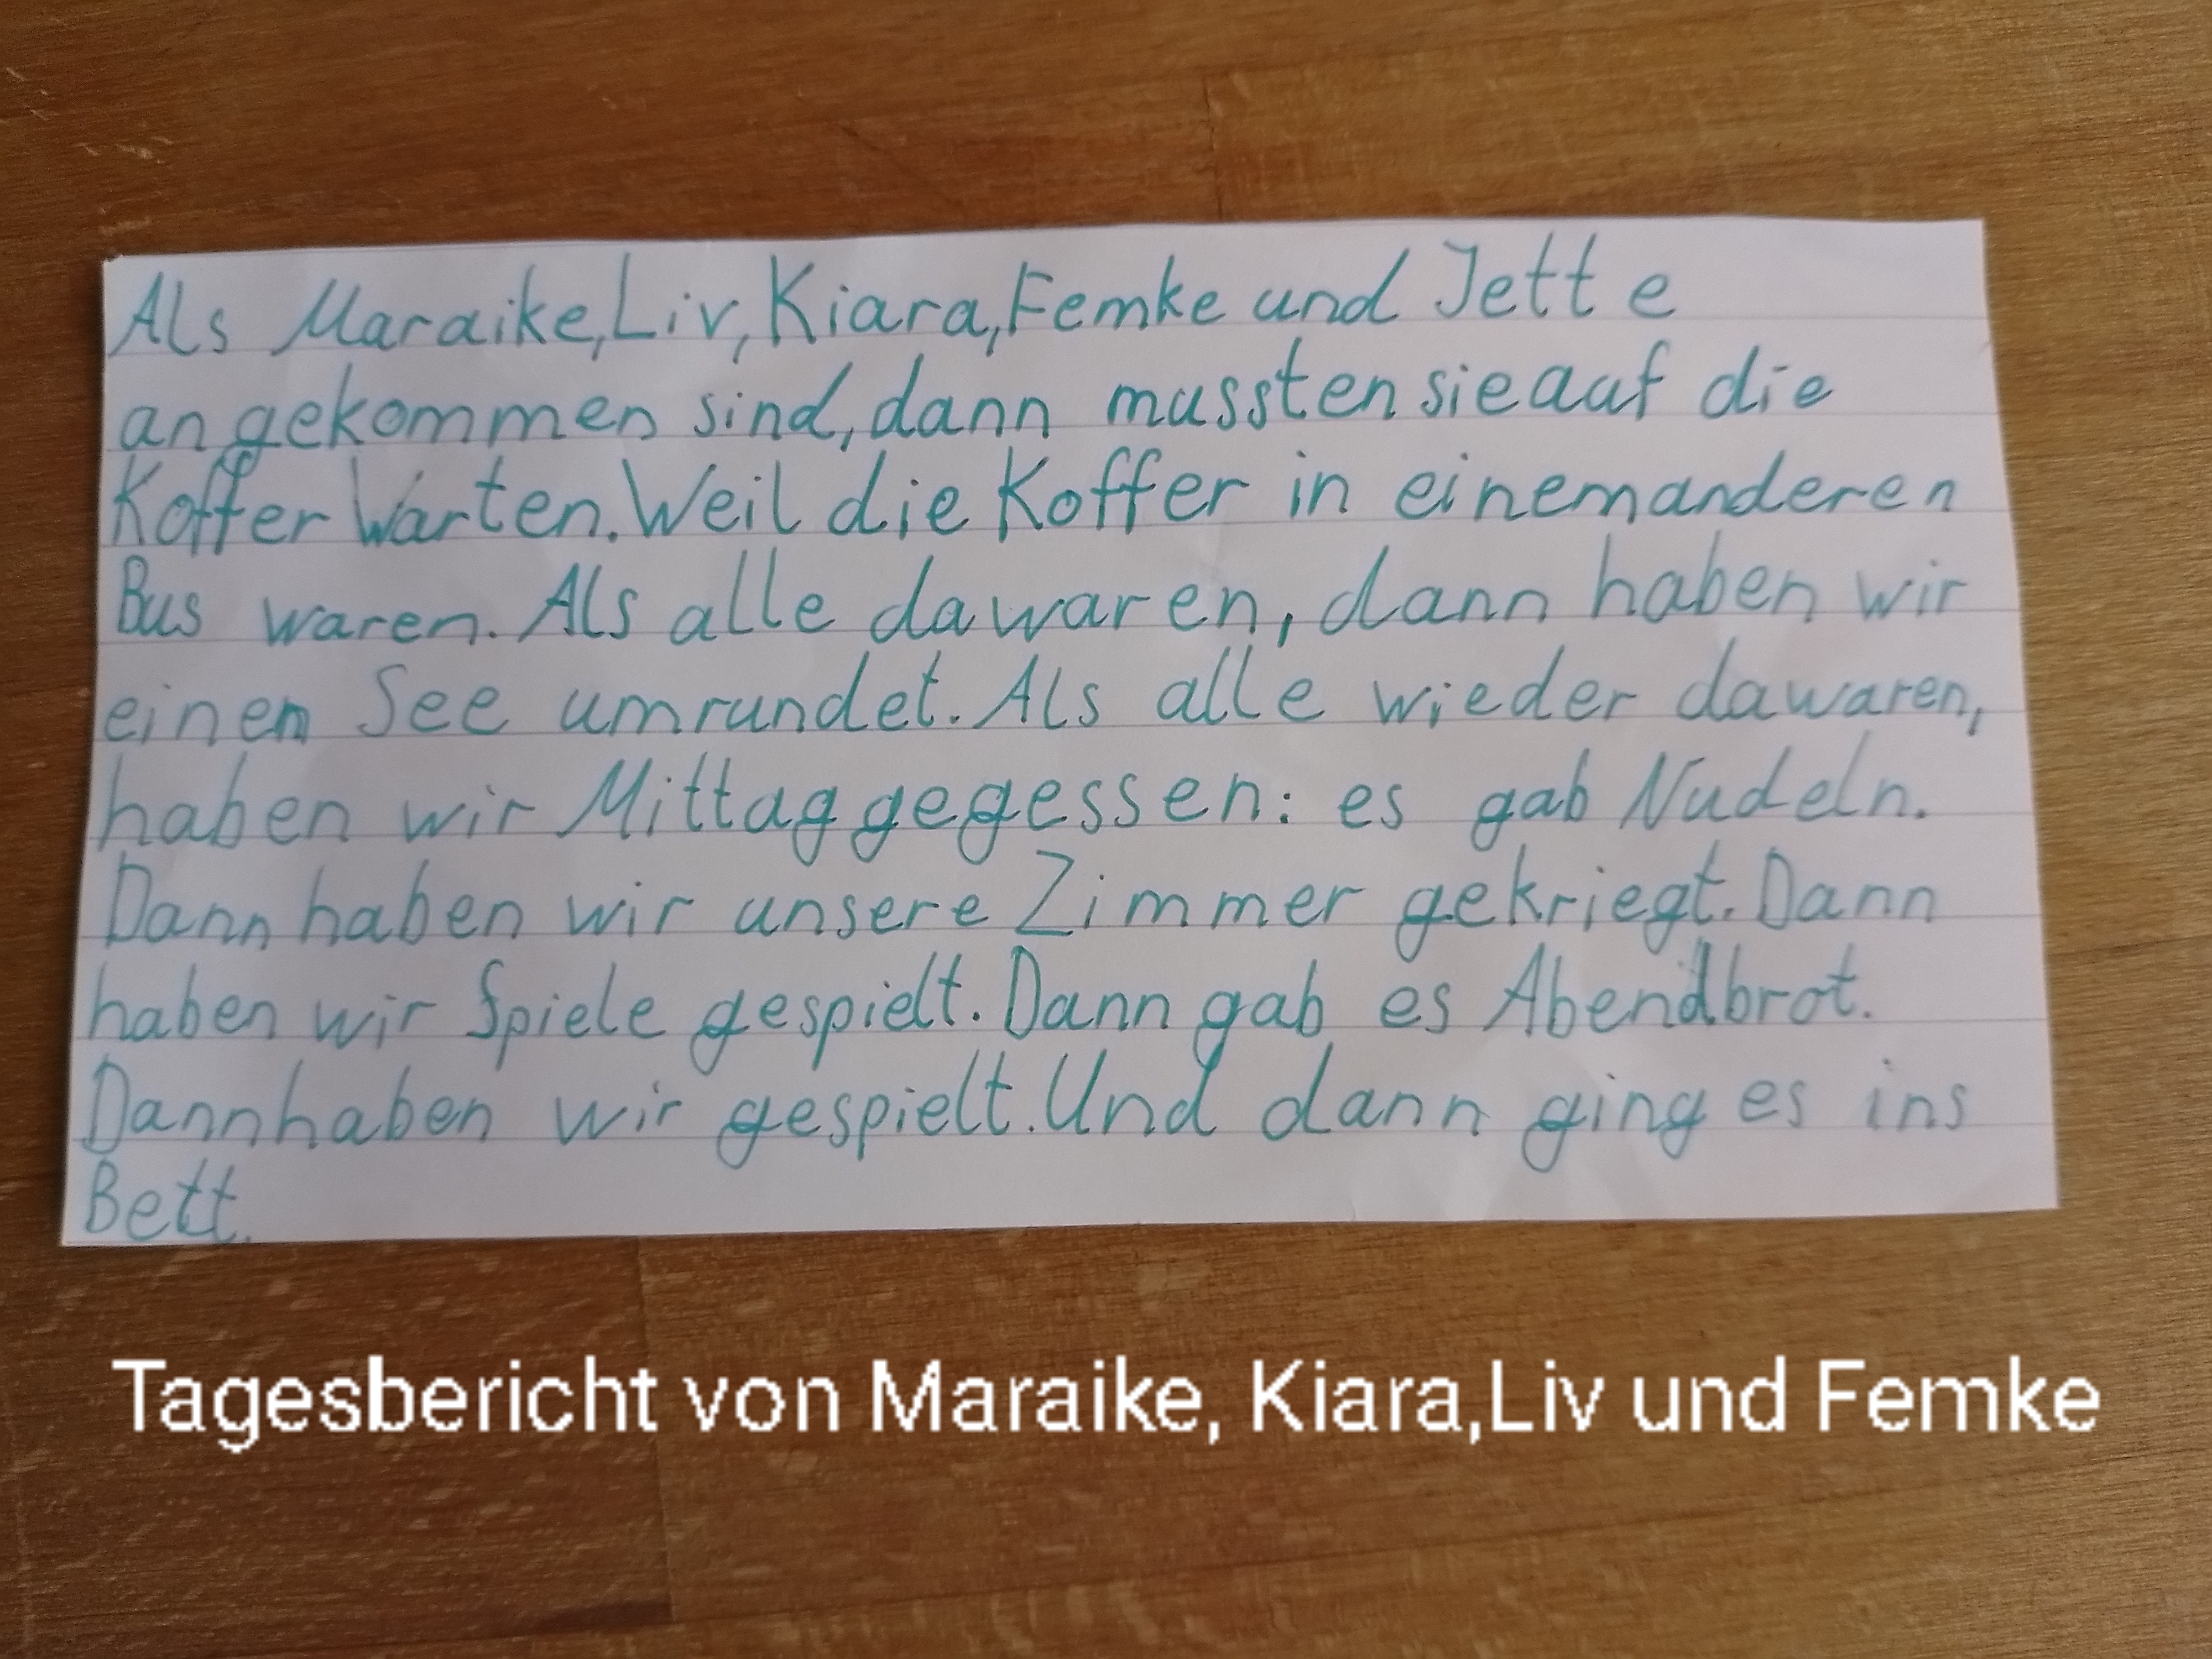 Als Maraike, Liv, Kiara, Femke und Jette
angekommen sind, dann mussten sie auf die
Koffer Warten. Weil die Koffer in einem anderen
Bus waren. Als alle da waren, dann haben wir
einen See umrundet. Als alle wieder da waren,
haben wir Mittag gegessen: es gab Nudeln.
Dann haben wir unsere Zimmer gekriegt. Dann
haben wir Spiele gespielt. Dann gab es Abendbrot.
Dann haben wir gespielt. Und dann ging es ins
Bett.
Tagesbericht von Maraike, Kiara,Liv und Femke